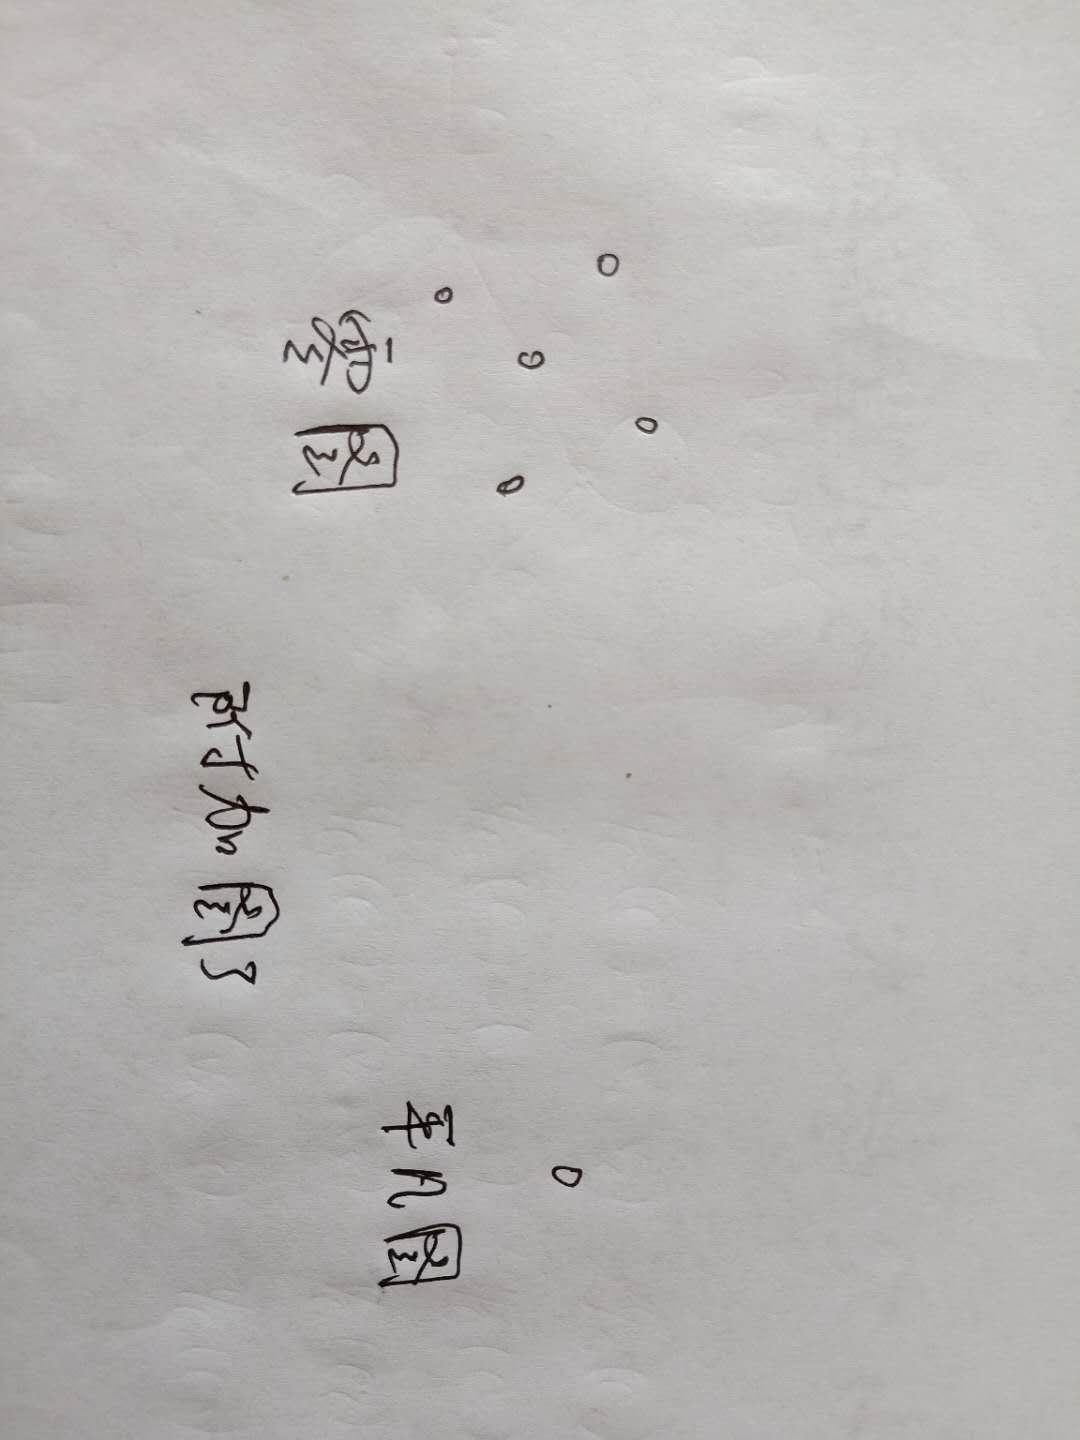 零图
平凡图
附加图3